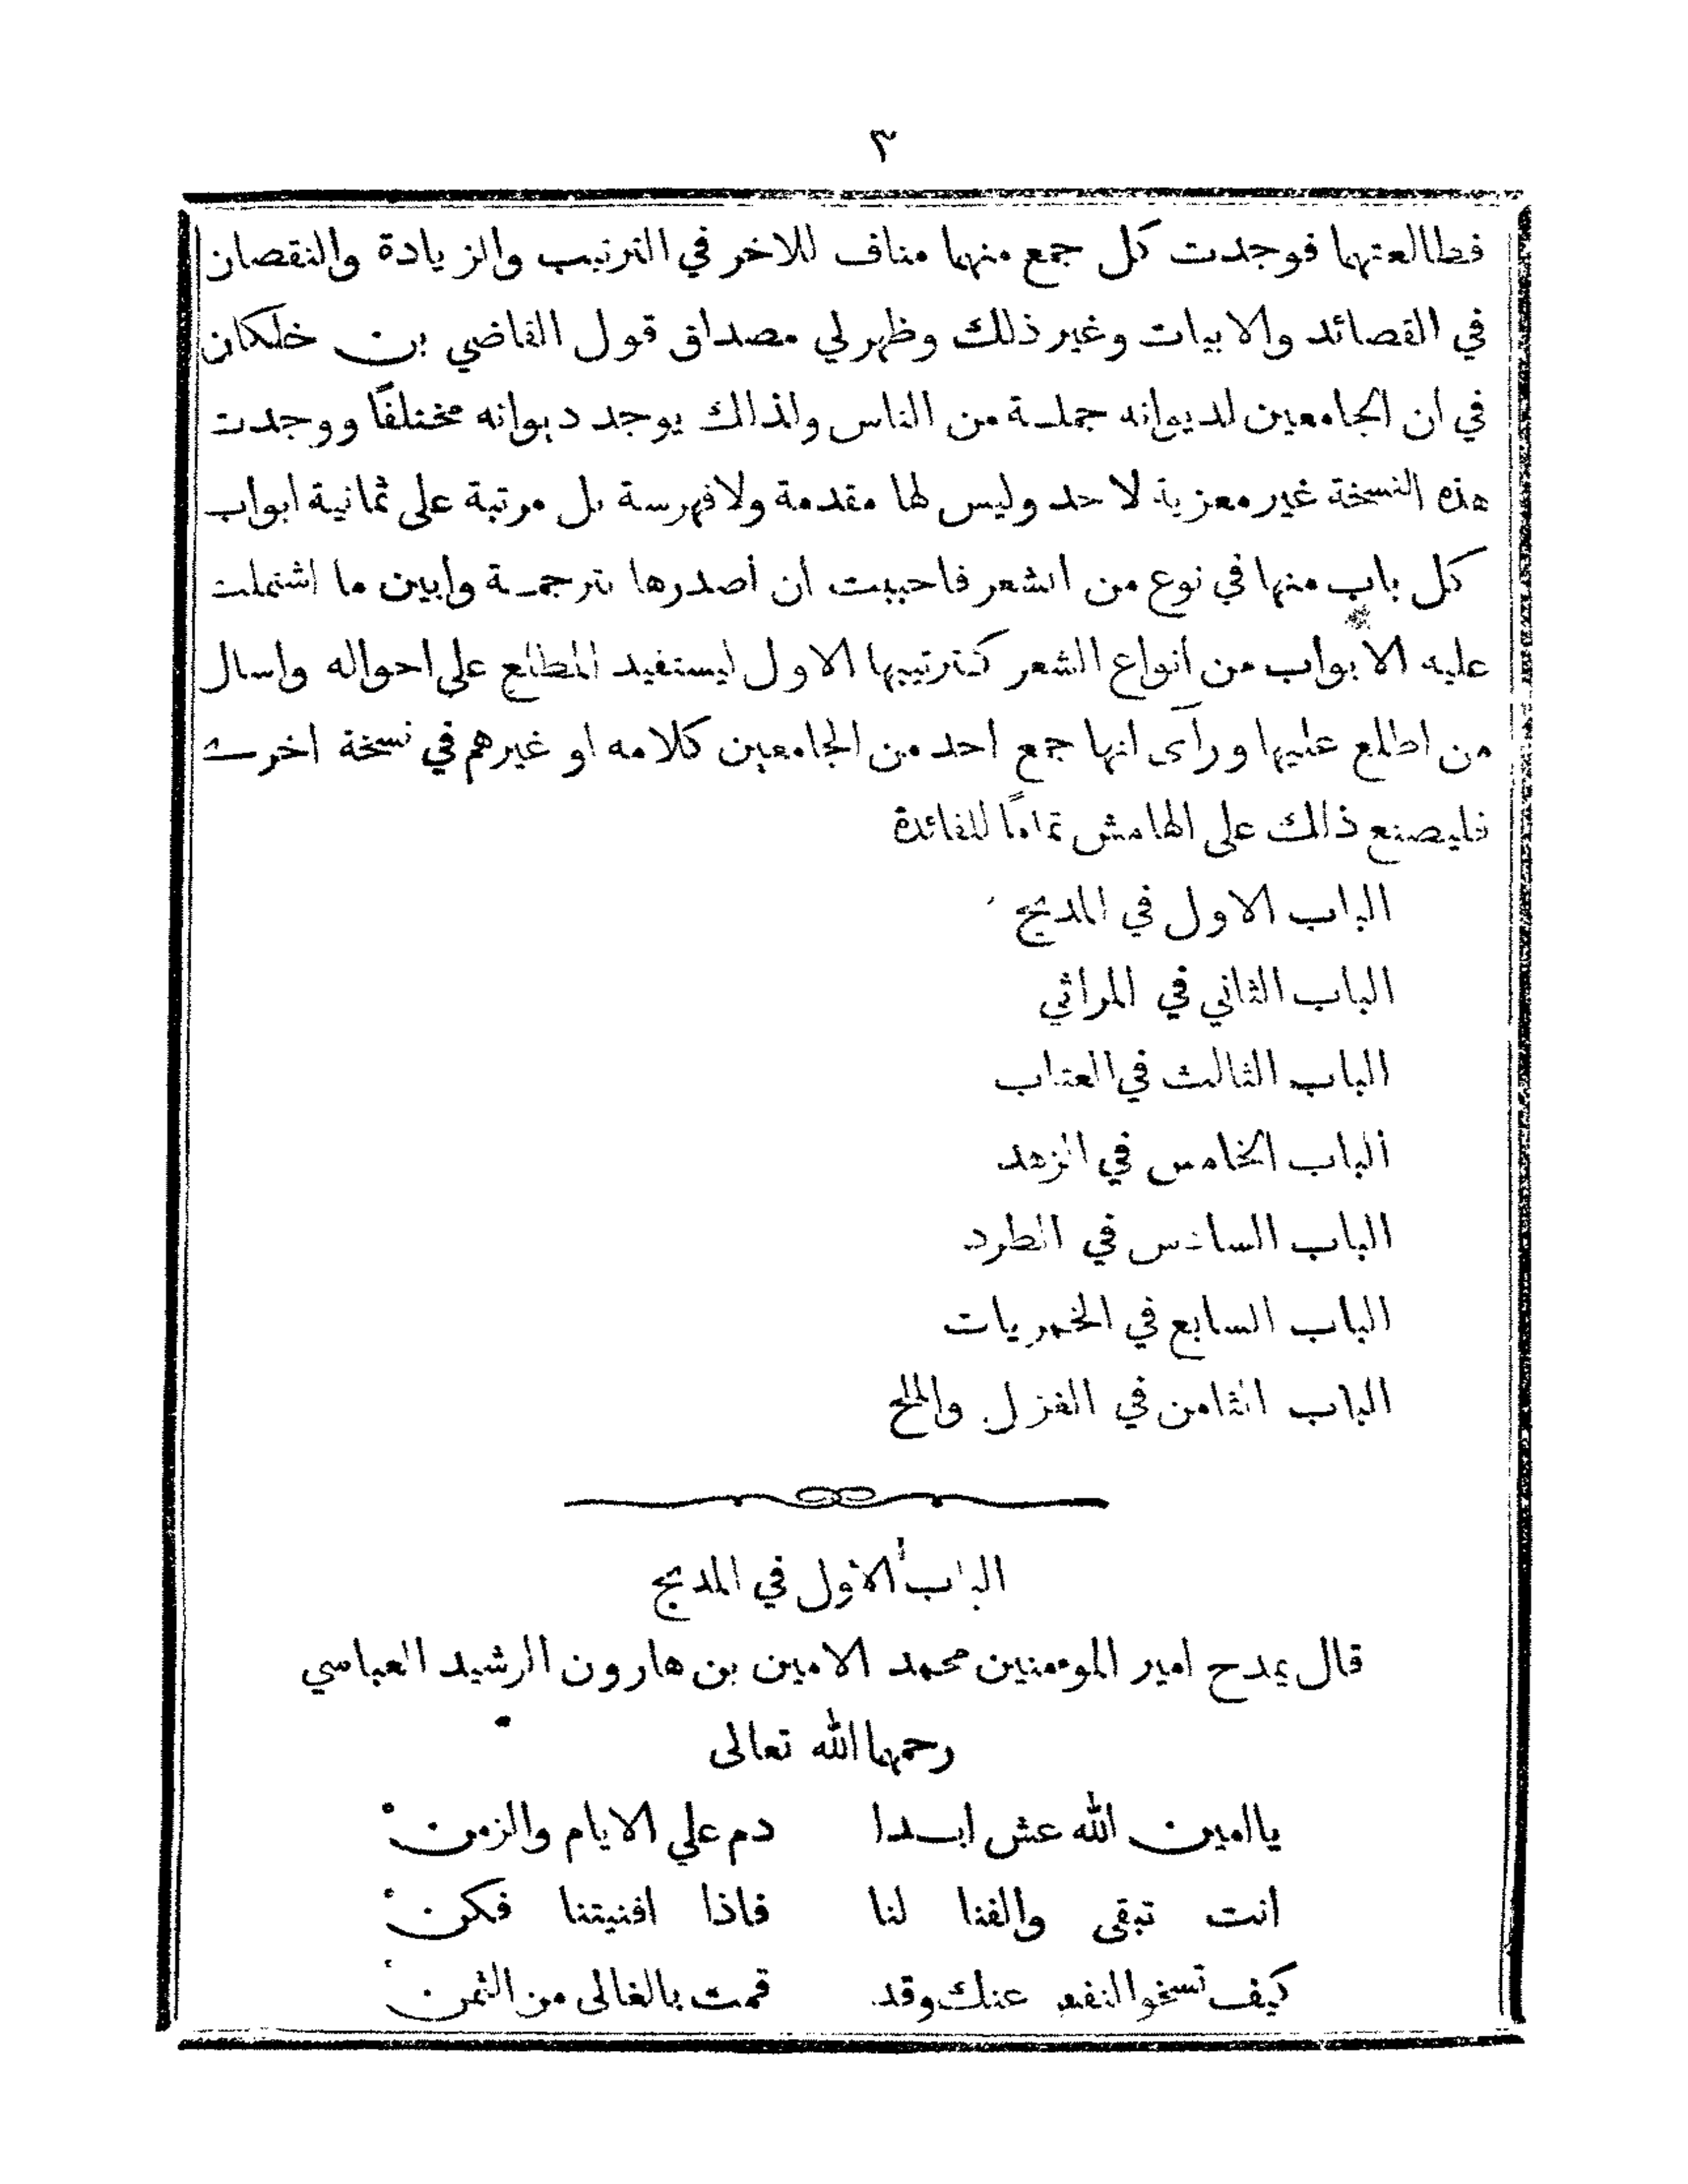 ٣
فطالعتهما فوجدت كل جمع منهما مناف للاخر في الترتيب والزيادة والنقصان
في القصائد والابيات وغير ذلك وظهر لي مصداق قول القاضي بن خلكان
في ان الجامعين لديوانه جملة من الناس ولذالك يوجد ديوانه مختلفًا ووجدت
هذه النسخة غير معزية لاحد وليس لها مقدمة ولا فهرسة بل مرتبة على ثمانية ابواب
كل باب منها في نوع من الشعر فاحببت ان أصدرها بترجمة وابين ما اشتملت
عليه الابواب من أنواع الشعر كترتيبها الاول ليستفيد المطلع على احواله واسال
من اطلع عليها ورآى انها جمع احد من الجامعين كلامه او غيرهم في نسخة اخرى
فليصنع ذالك على الهامش تمامًا للفائدة
الباب الاول في المديح
الباب الثاني في المراثي
الباب الثالث في العتاب
الباب الخامس في الزهد
الباب السادس في الطرد
الباب السابع في الخمريات
الباب الثامن في الغزل والملح
الباب الأول في المديح
قال يمدح امير المومنين محمد الامين بن هارون الرشيد العباسي
رحمهما الله تعالى
يا امين الله عش ابدا دم على الايام والزمن
انت تبقى والفنا لنا فاذا افنيتنا فكن
كيف تسخوا النفس عنك وقد قمت بالغالى من الثمن